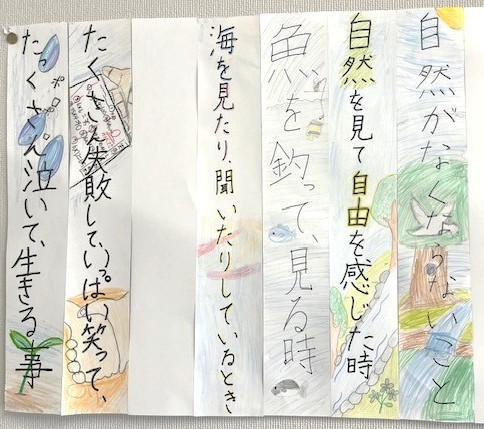 自然がなくならないこと
自然を見て自由を感じた時
魚を釣って、見る時
海を見たり、聞いたりしているとき
たくさん失敗して、いっぱい笑って、
たっくさん泣いて、生きる事
ポロポロ